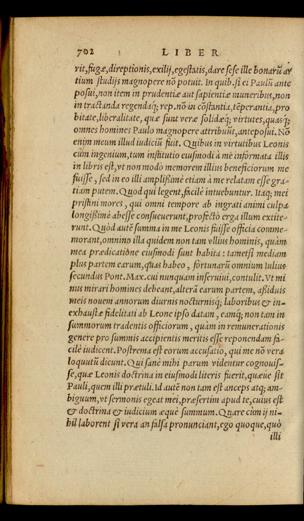 702 LIBER
rit, fugæ, direptionis, exilij, egestatis, dare sese ille bonarũ ar
tium studijs magnopere nõ potuit. In quib. si ei Paulũ ante
posui, non item in prudentiæ aut sapientiæ muneribus, non
in tractanda regendaq́; rep. nõ in cõstantia, tẽperantia, pro
bitate, liberalitate, quæ sunt veræ solidæq́; virtutes, quasq́;
omnes homines Paulo magnopere attribuũt, anteposui. Nõ
enim meum illud iudiciũ fuit. Quibus in virtutibus Leonis
cùm ingenium, tum institutio eiusmodi à mè informata illis
in libris est, vt non modò memorem illius beneficiorum me
fuisse, sed in eo illi amplissimè etiam à me relatam esse gra-
tiam putem. Quod qui legent, facilè intuebuntur. Itaq; mei
pristini mores, qui omni tempore ab ingrati animi culpa
longissimè abesse consueuerunt, profectò erga illum extite-
runt. Quòd autẽ summa in me Leonis fuisse officia comme-
morant, omnino illa quidem non tam ellius hominis, quàm
mea prædicatione eiusmodi sunt habita: tametsi mediam
plus partem earum, quas habeo, fortunarũ omnium Iulius
secundus Pont. Max. cui nunquam inseruiui, contulit. Vt mi
nus mirari homines debeant, alterã earum partem, assiduis
meis nouem annorum diurnis nocturnisq́; laboribus & in-
exhaustæ fidelitati ab Leone ipso datam, eamq́; non tam in
summorum tradentis officiorum, quàm in remunerationis
genere pro summis accipientis meritis esse reponendam fa-
cilè iudicent. Postrema est eorum accusatio, qui me nõ vera
loquutũ dicunt. Qui sanè mihi parum videntur cognouis-
se, quæ Leonis doctrina in eiusmodi literis fuerit, quæue sit
Pauli, quem illi prætuli. Id autẽ non tam est anceps atq; am-
biguum, vt sermonis egeat mei, præsertim apud te, cuius est
& doctrina & iudicium æquè summum. Quare cùm ij ni-
hil laborent si vera an falsa pronunciant, ego quoque, quò
illi